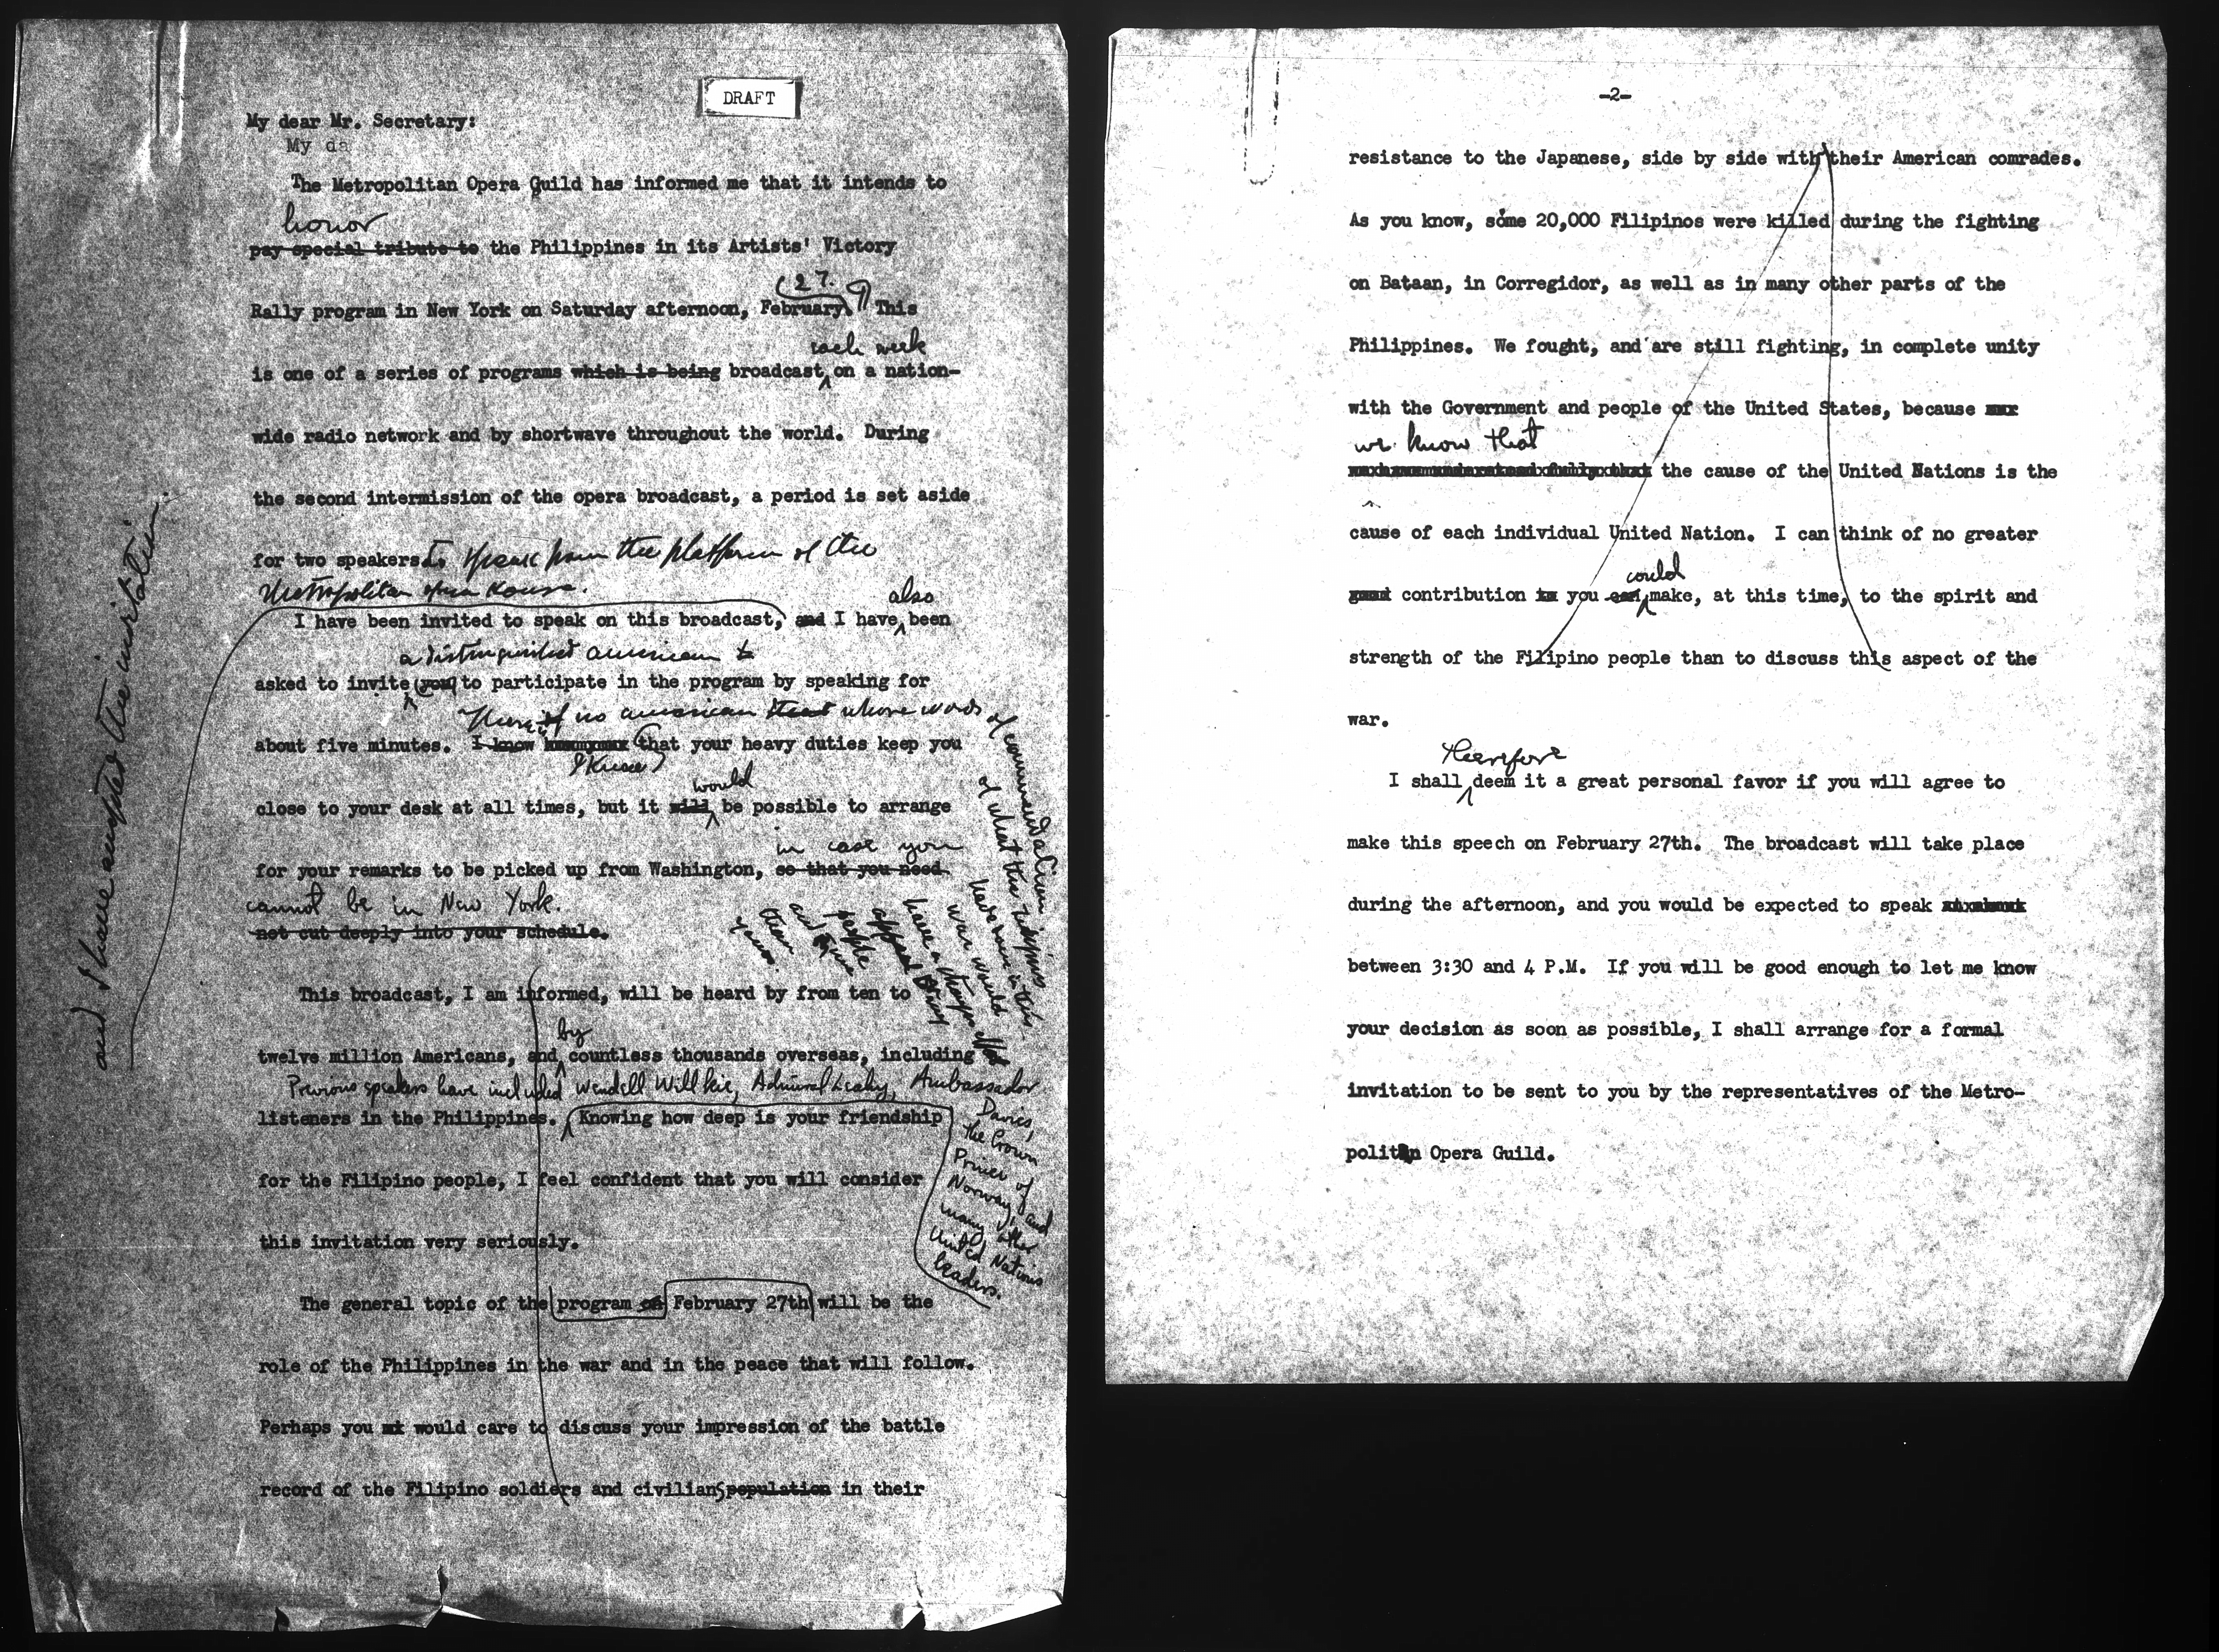 DRAFT
My dear Mr. Secretary:
My da
The Metropolitan Opera Guild has informed me that it intends to
honor
pay special tribute to the Philippines in its Artists' Victory
27.
Rally program in New York on Saturday afternoon, February. This
each week
is one of a series of programs which is being broadcast on a nation-
wide radio network and by shortwave throughout the world. During
the second intermission of the opera broadcast, a period is set aside
for two speakers to speak from the platform of the
Metropolitan Opera House.
also
I have been invited to speak on this broadcast, and I have been
and I have accepted the invitation.
a distinguished American to
asked to invite you to participate in the program by speaking for
There is no American that whose words
of commendation
of what the Filipinos
have done in this
war would
have a stronger effect
appeal
people
and
than
yours.
about five minutes. I know that your heavy duties keep you
I know
would
close to your desk at all times, but it will be possible to arrange
in case you
for your remarks to be picked up from Washington, so that you need
cannot be in New York.
not cut deeply into your schedule.
This broadcast, I am informed, will be heard by from ten to
by
twelve million Americans, and countless thousands overseas, including
Previous speakers have included Wendell Willkie, Admiral Leahy, Ambassador
Davies,
the Crown
Prince of
Norway, and
many other
United Nations
leaders.
listeners in the Philippines. Knowing how deep is your friendship
for the Filipino people, I feel confident that you will consider
this invitation very seriously.
The general topic of the program on February 27th will be the
role of the Philippines in the war and in the peace that will follow.
Perhaps you would care to discuss your impression of the battle
record of the Filipino soldiers and civilians population in their
-2-
resistance to the Japanese, side by side with their American comrades.
As you know, some 20,000 Filipinos were killed during the fighting
on Bataan, in Corregidor, as well as in many other parts of the
Philippines. We fought, and are still fighting, in complete unity
with the Government and people of the United States, because
we know that
the cause of the United Nations is the
cause of each individual United Nation. I can think of no greater
could
good contribution you can make, at this time, to the spirit and
strength of the Filipino people than to discuss this aspect of the
war.
therefore
I shall deem it a great personal favor if you will agree to
make this speech on February 27th. The broadcast will take place
during the afternoon, and you would be expected to speak
between 3:30 and 4 P.M. If you will be good enough to let me know
your decision as soon as possible, I shall arrange for a formal
invitation to be sent to you by the representatives of the Metro-
politan Opera Guild.